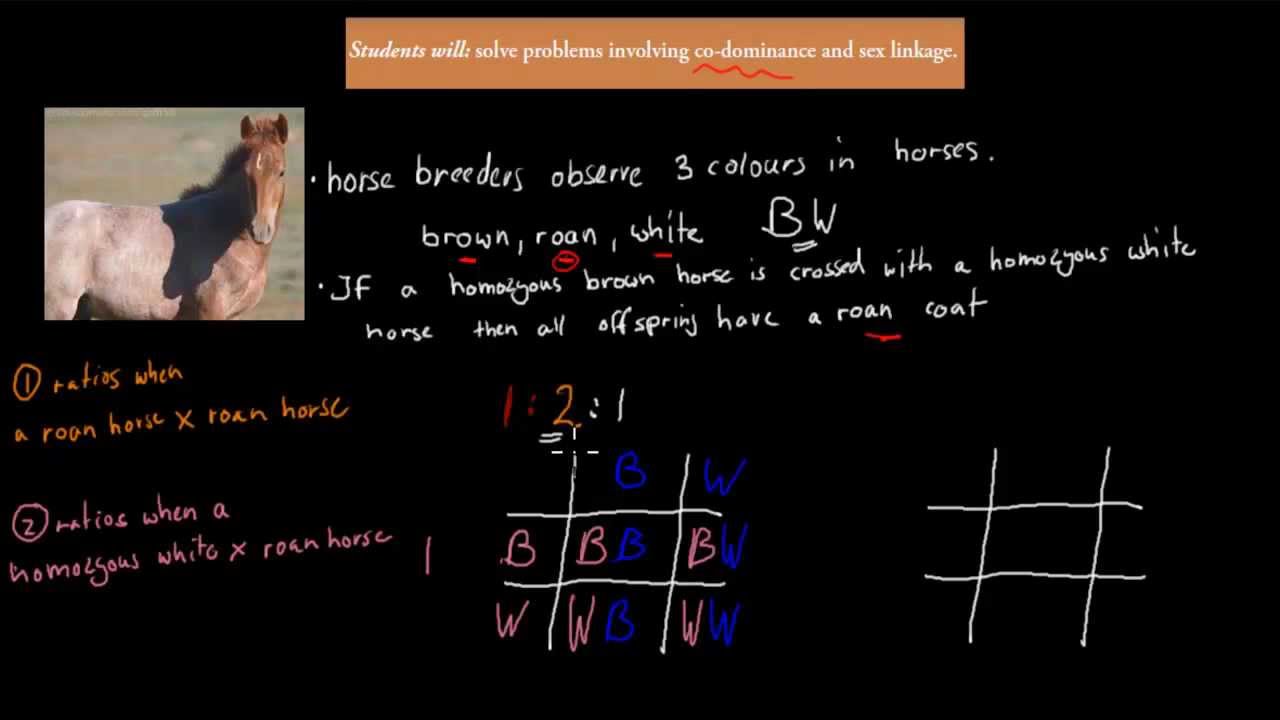 Students will: solve problems involving co-dominance and sex linkage.
• horse breeders observe 3 colours in horses.
brown, roan, white BW
• If a homozygous brown horse is crossed with a homozyous white
horse then all offspring have a roan coat
① ratios when
a roan horse x roan horse
② ratios when a
homozygous white x roan horse
1 : 2 : 1
B W
1 B BB BW
W WB WW